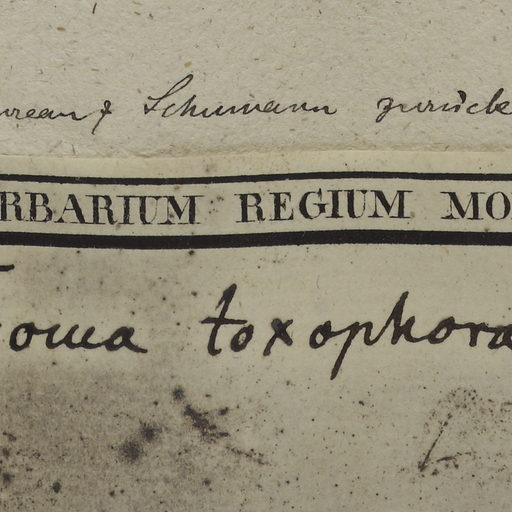 ureau & Schumann zurücke
RBARIUM REGIUM MO
oma toxophora